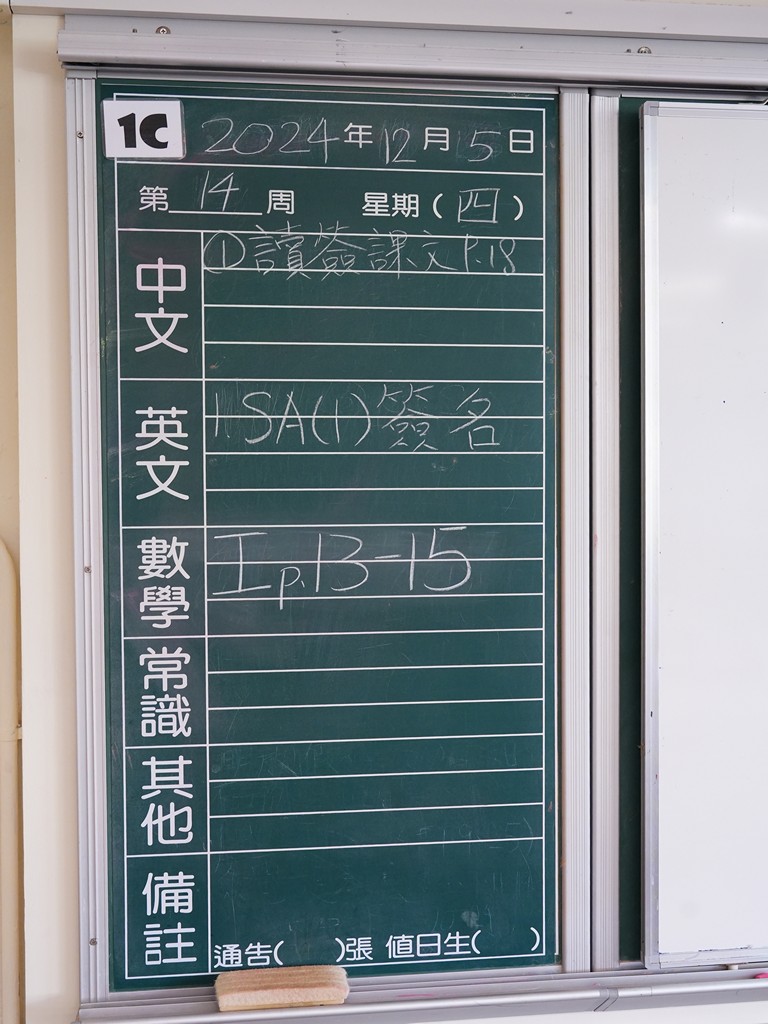 1C 2024年12月5日
第14周 星期(四)
中文 ①讀簽課文 P.18
英文 1 SA(1)簽名
數學 I p.13-15
常識
其他
備註 通告( )張 值日生( )